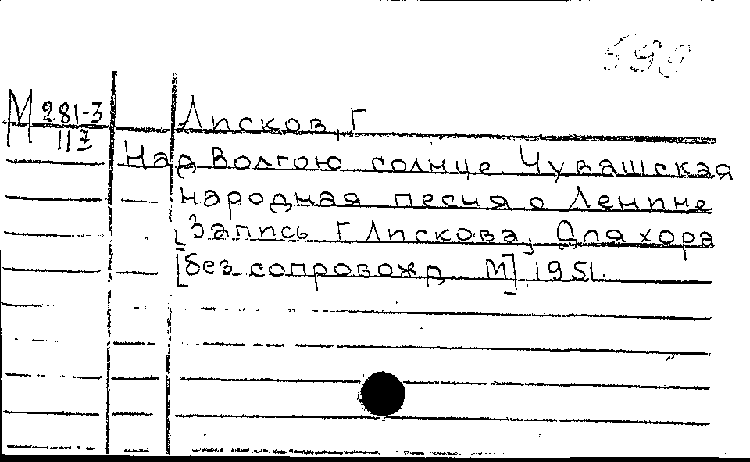 599
М 281-3
117
Лисков, Г
Над Волгою солнце. Чувашская
народная песня о Ленине
Запись Г Лискова, Для хора
[без сопровожд М], 1951.